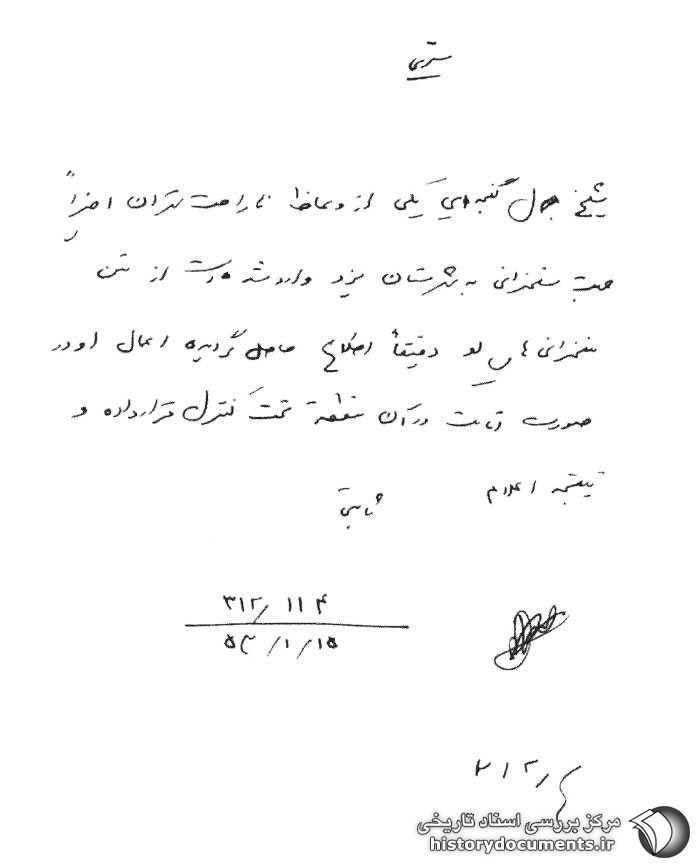 سری
شیخ جلال گنجه‌ای یکی از وعاظ ناراحت تهران اخیراً
جهت سخنرانی به شهرستان یزد وارد شده است از متن
سخنرانی‌های او دقیقاً اطلاع حاصل گردیده اعمال او در
صورت اقامت در آن منطقه تحت کنترل قرار داده و
نتیجه اعلام
ثابتی
۳۱۲/ ۱۱۴
۵۳/۱/۱۵
۳۱۲/
مرکز بررسی اسناد تاریخی
historydocuments.ir